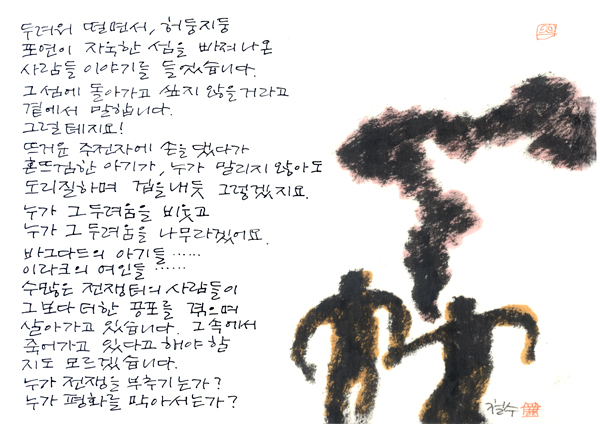 두려워 떨면서, 허둥지둥
포연이 자욱한 섬을 빠져나온
사람들 이야기를 들었습니다.
그 섬에 돌아가고 싶지 않을거라고
곁에서 말합니다.
그럴테지요!
뜨거운 주전자에 손을 댔다가
혼뜨검한 아기가, 누가 말리지 않아도
도리질하며 겁을 내듯 그렇겠지요.
누가 그 두려움을 비웃고
누가 그 두려움을 나무라겠어요.
바그다드의 아기들 ······
이라크의 여인들 ······
수많은 전쟁터의 사람들이
그보다 더한 공포를 겪으며
살아가고 있습니다. 그 속에서
죽어가고 있다고 해야 할
지도 모르겠습니다.
누가 전쟁을 부추기는가?
누가 평화를 막아서는가?
철수